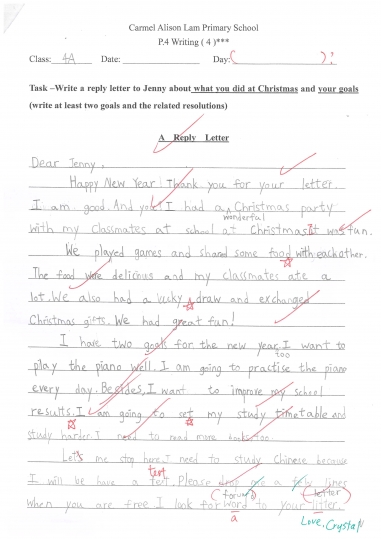 Carmel Alison Lam Primary School
P.4 Writing ( 4 )***
Class: 4A Date: Day: ( )?
Task –Write a reply letter to Jenny about what you did at Christmas and your goals
(write at least two goals and the related resolutions)
A Reply Letter
Dear Jenny,
Happy New Year! Thank you for your letter.
I am good. And you? I had a Christmas party
wonderful
with my classmates at school at Christmas. It was fun.
We played games and shared some food with each other.
The food were delicious and my classmates ate a
lot. We also had a lucky draw and exchanged
Christmas gifts. We had great fun!
I have two goals for the new year. I want to
too
play the piano well. I am going to practise the piano
every day. Besides, I want to improve my school
results. I am going to set my study timetable and
study harder. I need to read more books too.
Let's me stop here. I need to study Chinese because
test
I will be have a test. Please drop me a few lines
(forward) (letter)
when you are free I look for word to your litter.
a
Love, Crystal